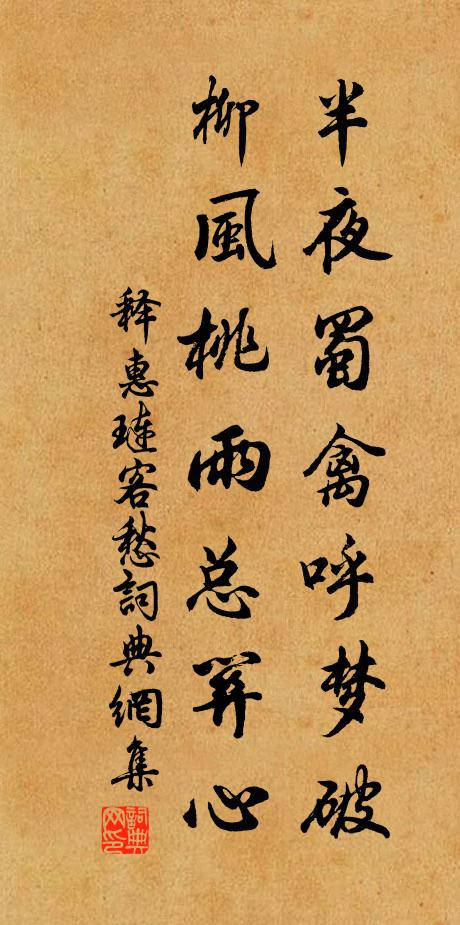 半夜蜀禽呼梦破
柳風桃雨总関心
释惠璉客愁詞典網集
詞典网印